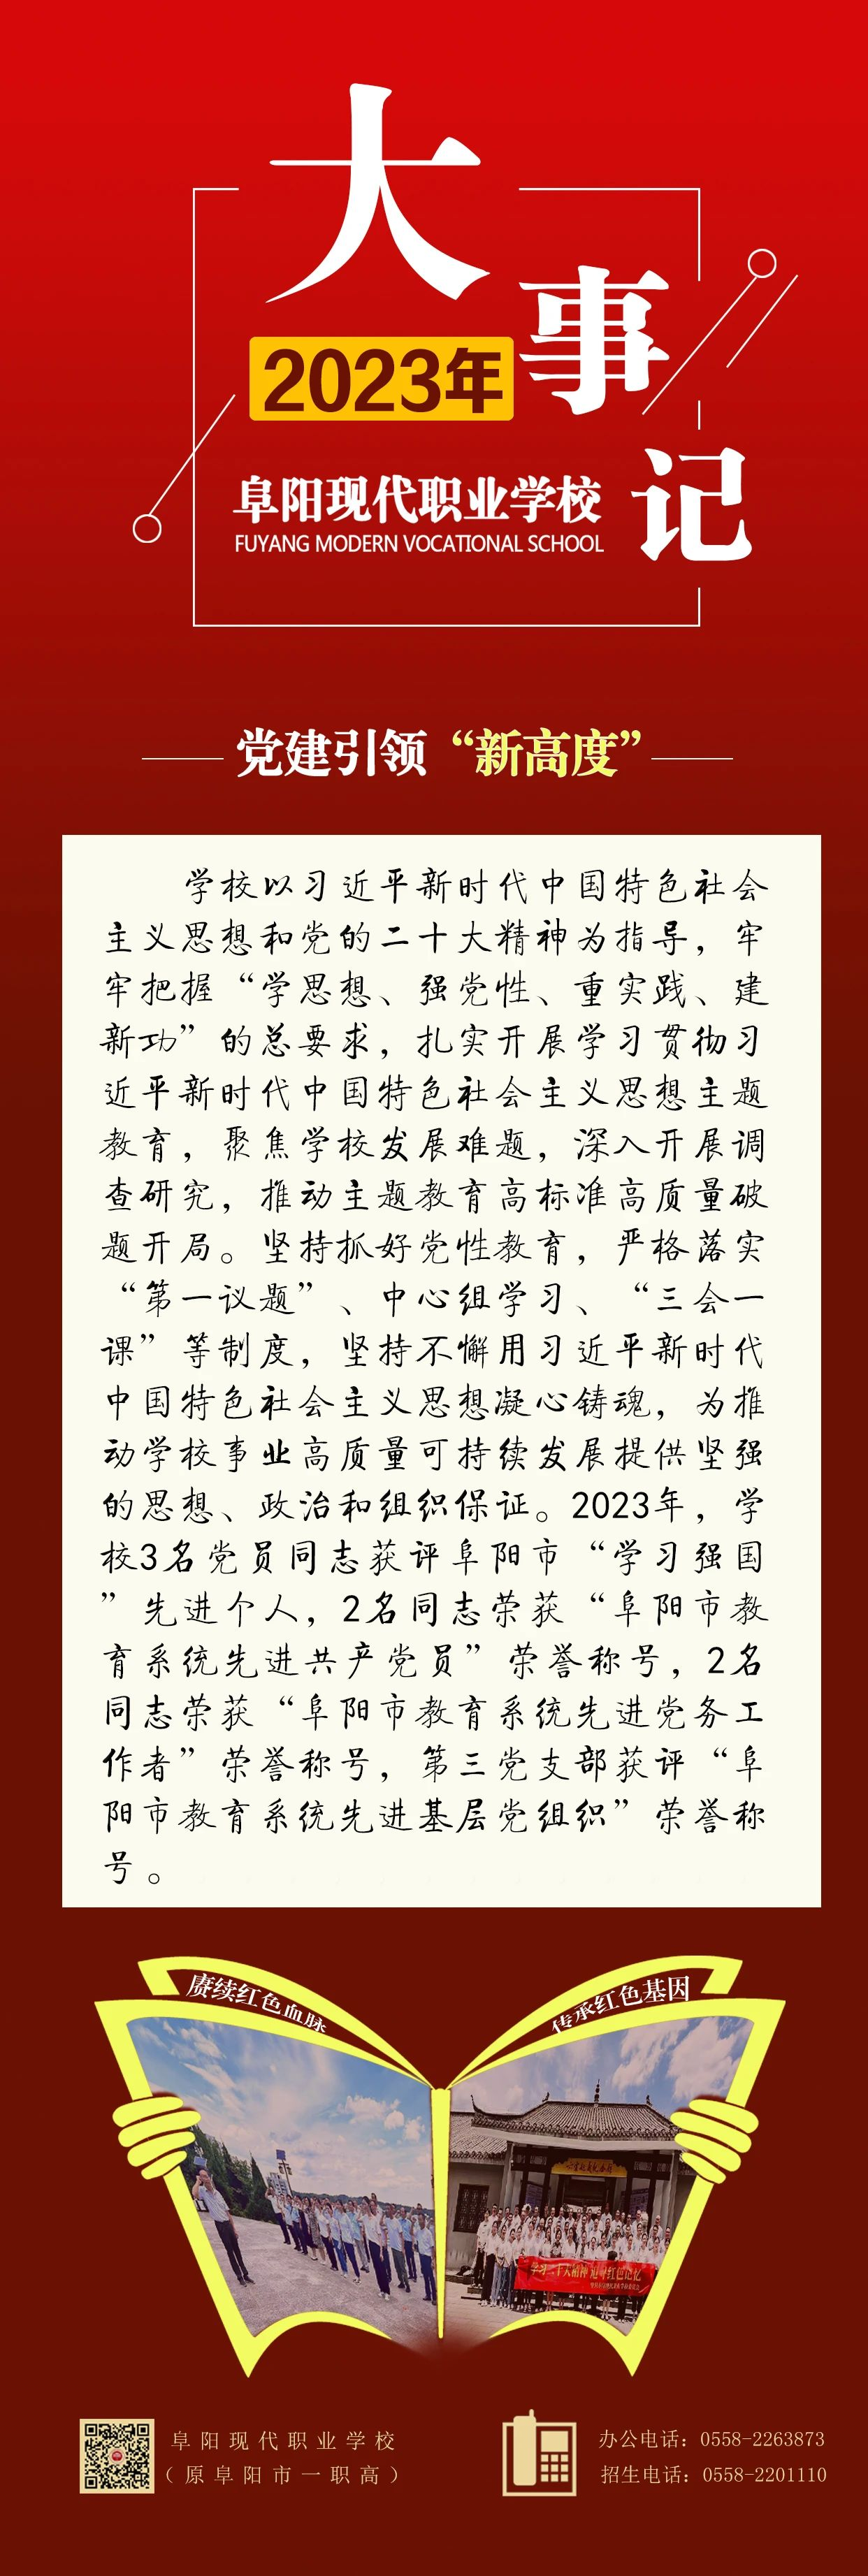 大事记
2023年
阜阳现代职业学校
FUYANG MODERN VOCATIONAL SCHOOL
党建引领“新高度”
学校以习近平新时代中国特色社会
主义思想和党的二十大精神为指导，牢
牢把握“学思想、强党性、重实践、建
新功”的总要求，扎实开展学习贯彻习
近平新时代中国特色社会主义思想主题
教育，聚焦学校发展难题，深入开展调
查研究，推动主题教育高标准高质量破
题开局。坚持抓好党性教育，严格落实
“第一议题”、中心组学习、“三会一
课”等制度，坚持不懈用习近平新时代
中国特色社会主义思想凝心铸魂，为推
动学校事业高质量可持续发展提供坚强
的思想、政治和组织保证。2023年，学
校3名党员同志获评阜阳市“学习强国
”先进个人，2名同志荣获“阜阳市教
育系统先进共产党员”荣誉称号，2名
同志荣获“阜阳市教育系统先进党务工
作者”荣誉称号，第三党支部获评“阜
阳市教育系统先进基层党组织”荣誉称
号。
赓续红色血脉
传承红色基因
学习二十大精神 追寻红色记忆
阜阳现代职业学校
（原阜阳市一职高）
办公电话：0558-2263873
招生电话：0558-2201110